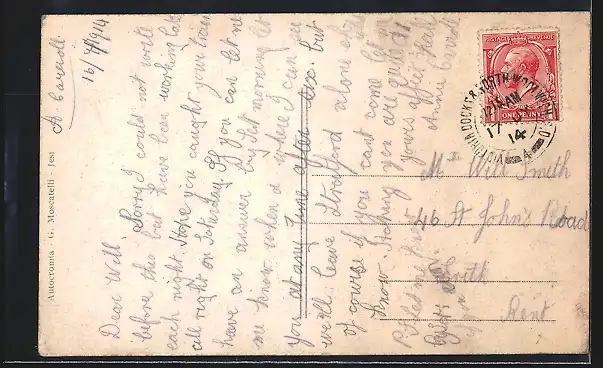 A. Carroll
16/7/1914
Dear Will Sorry I could not write
before this but have been working late
each night. Hope you caught your train
all right on Saturday. If you can let me
have an answer by Sat morning let
me know when & where I can see
you at any time after six. but
we'll leave Stratford alone
of course if you cant come let me
know. Hoping you are quite
Yours
Annie Carroll
Mr Will Smith
46 St John's Road
Erith
Kent
Autocromia - G. Moscatelli - Jesi
POSTAGE REVENUE
ONE PENNY
VICTORIA DOCKS & NORTH WOOLWICH
17
14